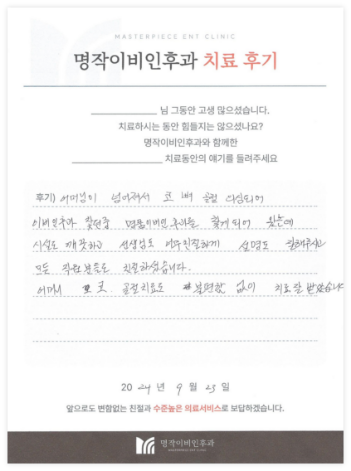 MASTERPIECE ENT CLINIC
명작이비인후과 치료 후기
님 그동안 고생 많으셨습니다.
치료하시는 동안 힘들지는 않으셨나요?
명작이비인후과와 함께한
치료동안의 얘기를 들려주세요
후기) 어머님이 넘어져서 코 뼈 골절 의심되어
이비인후과 찾던중 명작이비인후과를 찾게 되어 왔는데
시설도 깨끗하고 선생님도 너무친절하게 설명도 잘해주시고
모든 직원분들도 친절하셨습니다.
어머니 코 골절치료도 불편함 없이 치료 잘 받았습니다
20 24 년 9 월 23 일
앞으로도 변함없는 친절과 수준높은 의료서비스로 보답하겠습니다.
명작이비인후과
MASTERPIECE ENT CLINIC